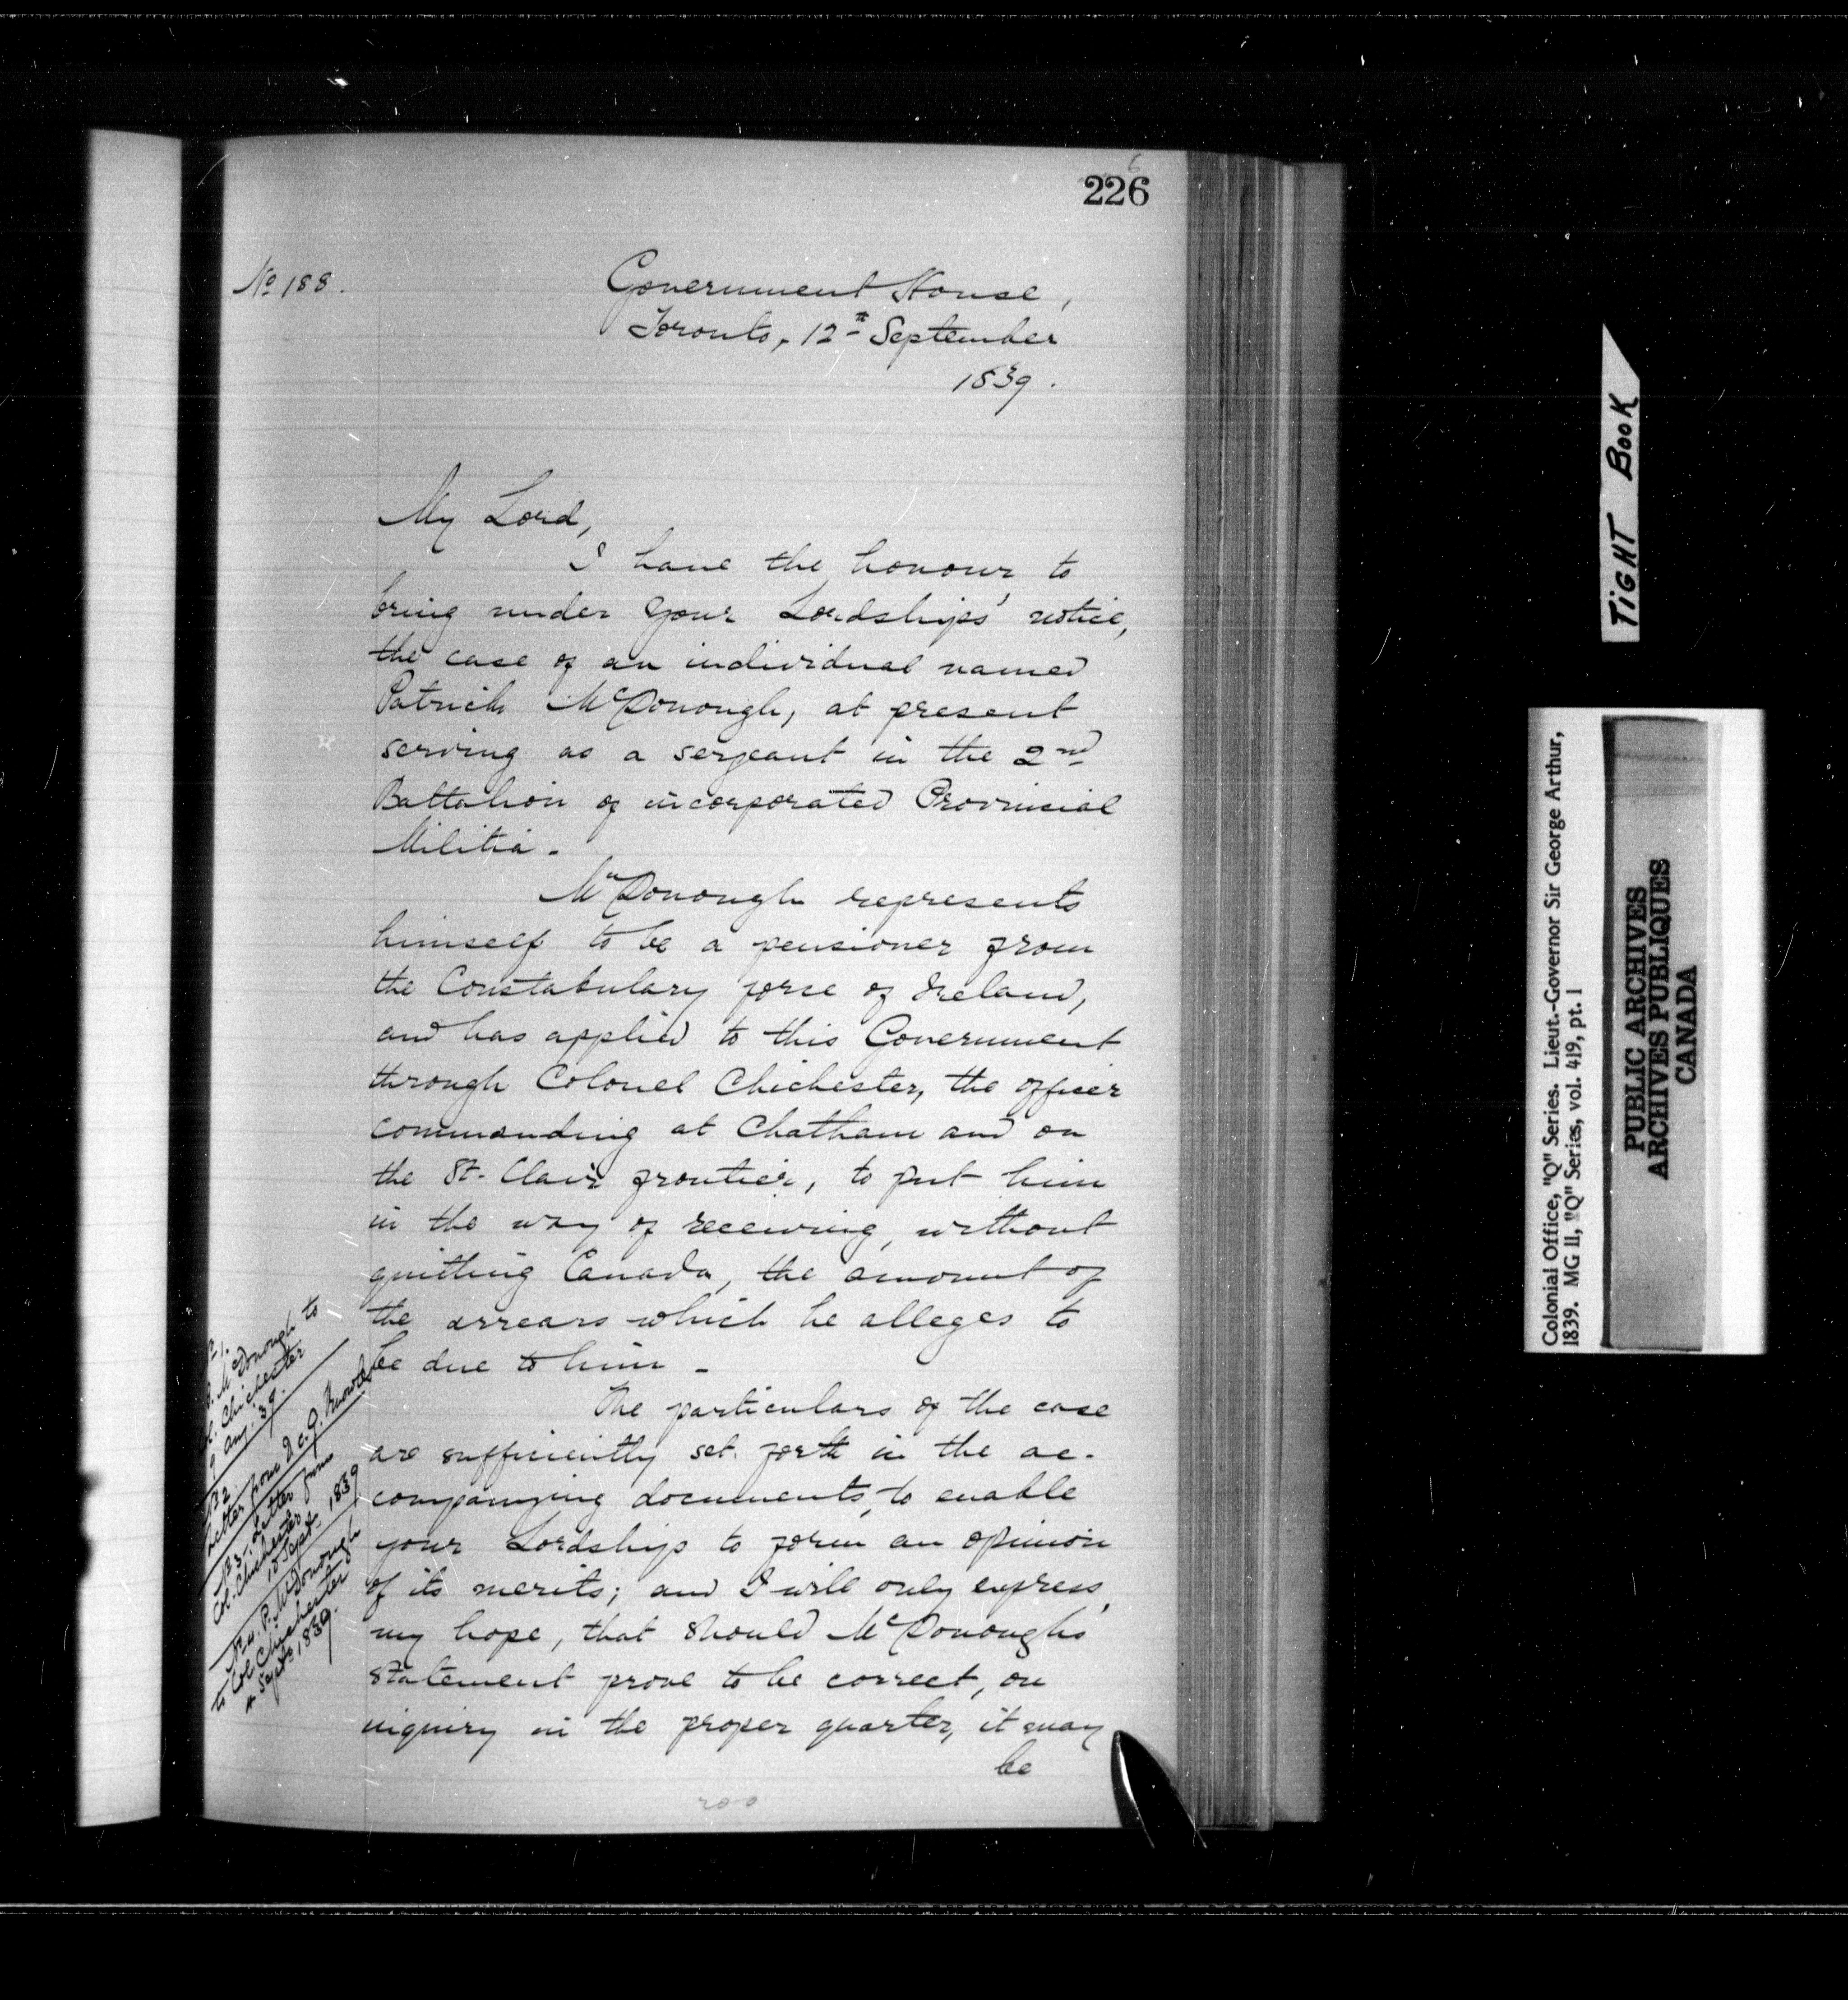 226
No 188.
Government House,
Toronto, 12th September
1839.
My Lord,
I have the honour to
bring under your Lordships' notice,
the case of an individual named
Patrick McDonough, at present
serving as a serjeant in the 2nd
Battalion of incorporated Provincial
Militia.
McDonough represents
himself to be a pensioner from
the Constabulary force of Ireland,
and has applied to this Government
through Colonel Chichester, the officer
commanding at Chatham and on
the St. Clair frontier, to put him
in the way of receiving, without
quitting Canada, the amount of
the arrears which he alleges to
be due to him -
The particulars of the case
are sufficiently set forth in the ac-
companying documents, to enable
your Lordship to form an opinion
of its merits; and I will only express,
my hope, that should McDonough's
statement prove to be correct, on
inquiry in the proper quarter, it may
be
200
P. McDonough to
Chichester
Aug. 39.
No 2
Letter from
No 3. Letter from
Col. Chichester
10 Sept. 1839
No 4. P. McDonough
to Col Chichester
4 Sept. 1839.
TIGHT BOOK
Colonial Office, "Q" Series. Lieut.-Governor Sir George Arthur,
1839. MG 11, "Q" Series, vol. 419, pt. 1
PUBLIC ARCHIVES
ARCHIVES PUBLIQUES
CANADA